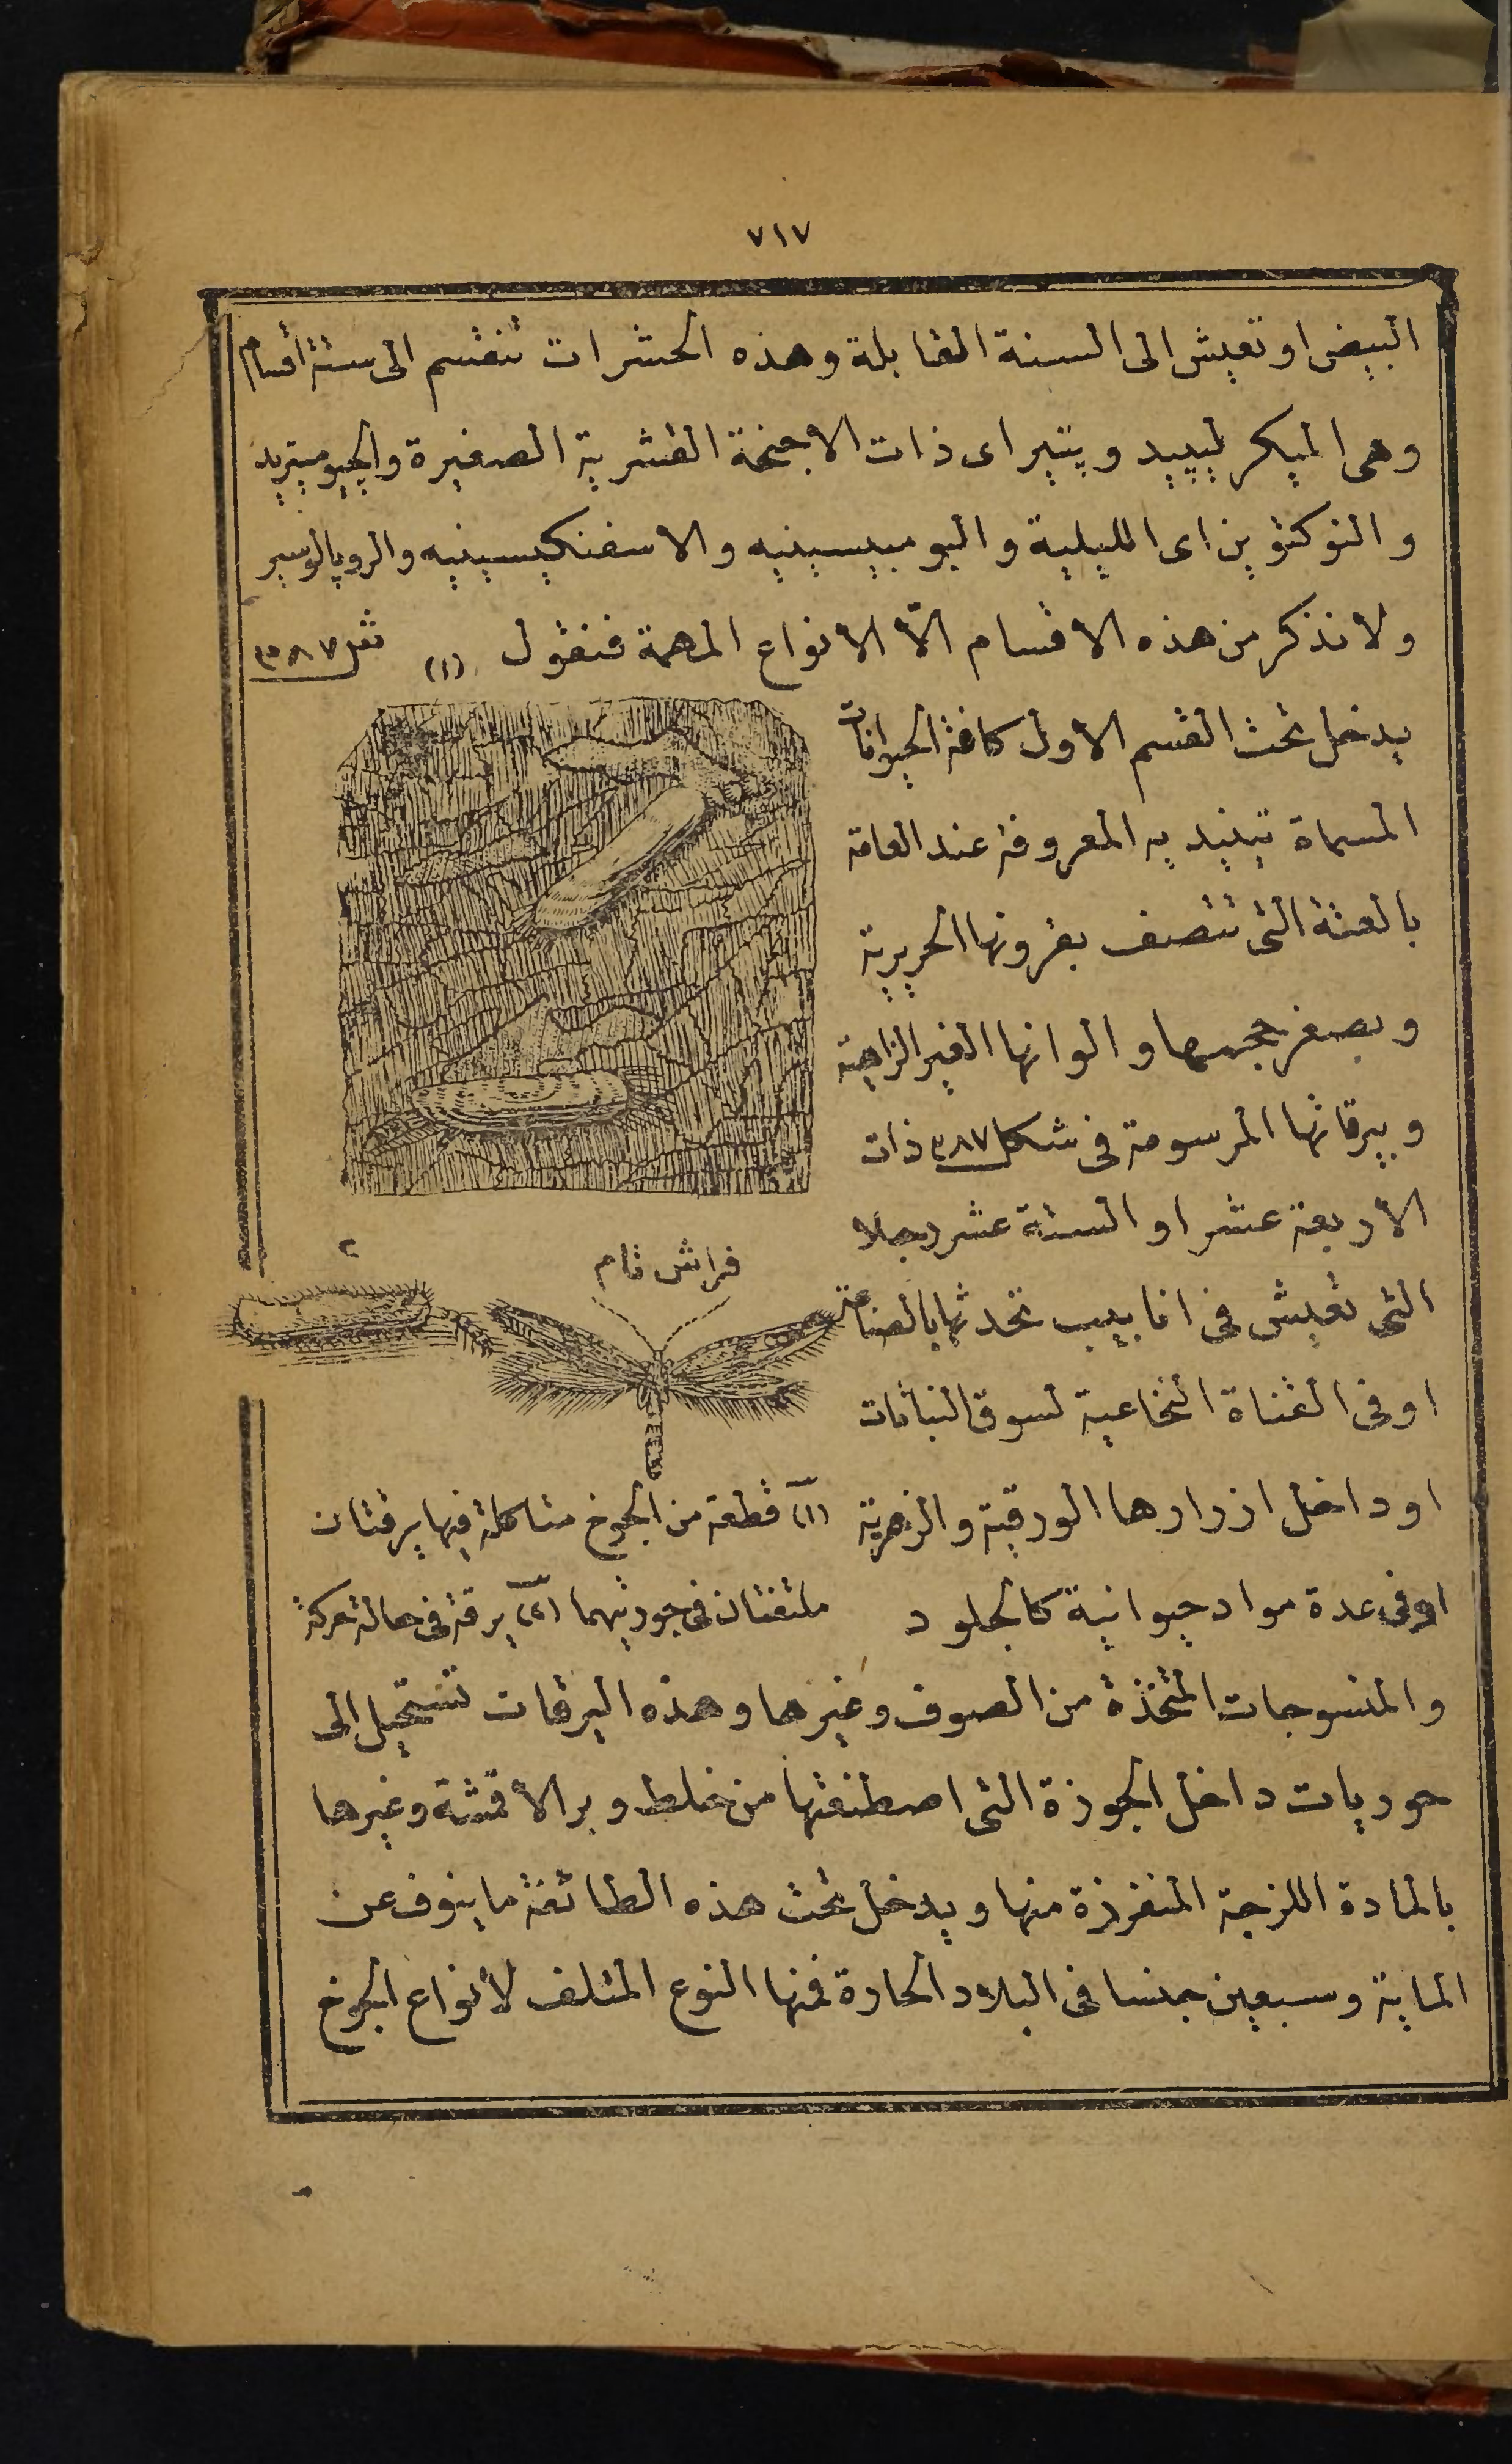 ٧١٧
البيض او تعيش الى السنة القابلة وهذه الحشرات تنقسم الى ستة أقسام
وهى الميكر لبييد وبتير اى ذات الاجنحة القشرية الصغيرة والجيوميتريد
والنوكتوين اى الليلية والبومبيسينيه والاسفنكيسينيه والروپالوسير
ولا نذكر من هذه الاقسام الّا الانواع المهمة فنقول
(١) شكل ٣٨٧
يدخل تحت القسم الاول كافة الحيوانات
المسماة تينيديه المعروفة عند العامة
بالعثة التى تتصف بقرونها الحريرية
وبصغر حجمها والوانها الغير الزاهية
ويرقاتها المرسومة فى شكل ٣٨٧ ذات
الاربعة عشر او الستة عشر رجلا
التى تعيش فى انابيب تحدثها بالصناعة
او فى القناة النخاعية لسوق النباتات
او داخل ازرارها الورقية والزهرية
او فى عدة مواد حيوانية كالجلود
٢
فراش تام
(١) قطعة من الجوخ متاكلة فيها يرقتان
ملتفتان فى جوزتيهما (٢) يرقة فى حالة حركة
والمنسوجات المتخذة من الصوف وغيرها وهذه اليرقات تستحيل الى
حوريات داخل الجوزة التى اصطنعتها من خلط وبر الأقمشة وغيرها
بالمادة اللزجة المنفرزة منها ويدخل تحت هذه الطائفة ما ينوف عن
الماية وسبعين جنسا فى البلاد الحارة فمنها النوع المتلف لأنواع الجوخ